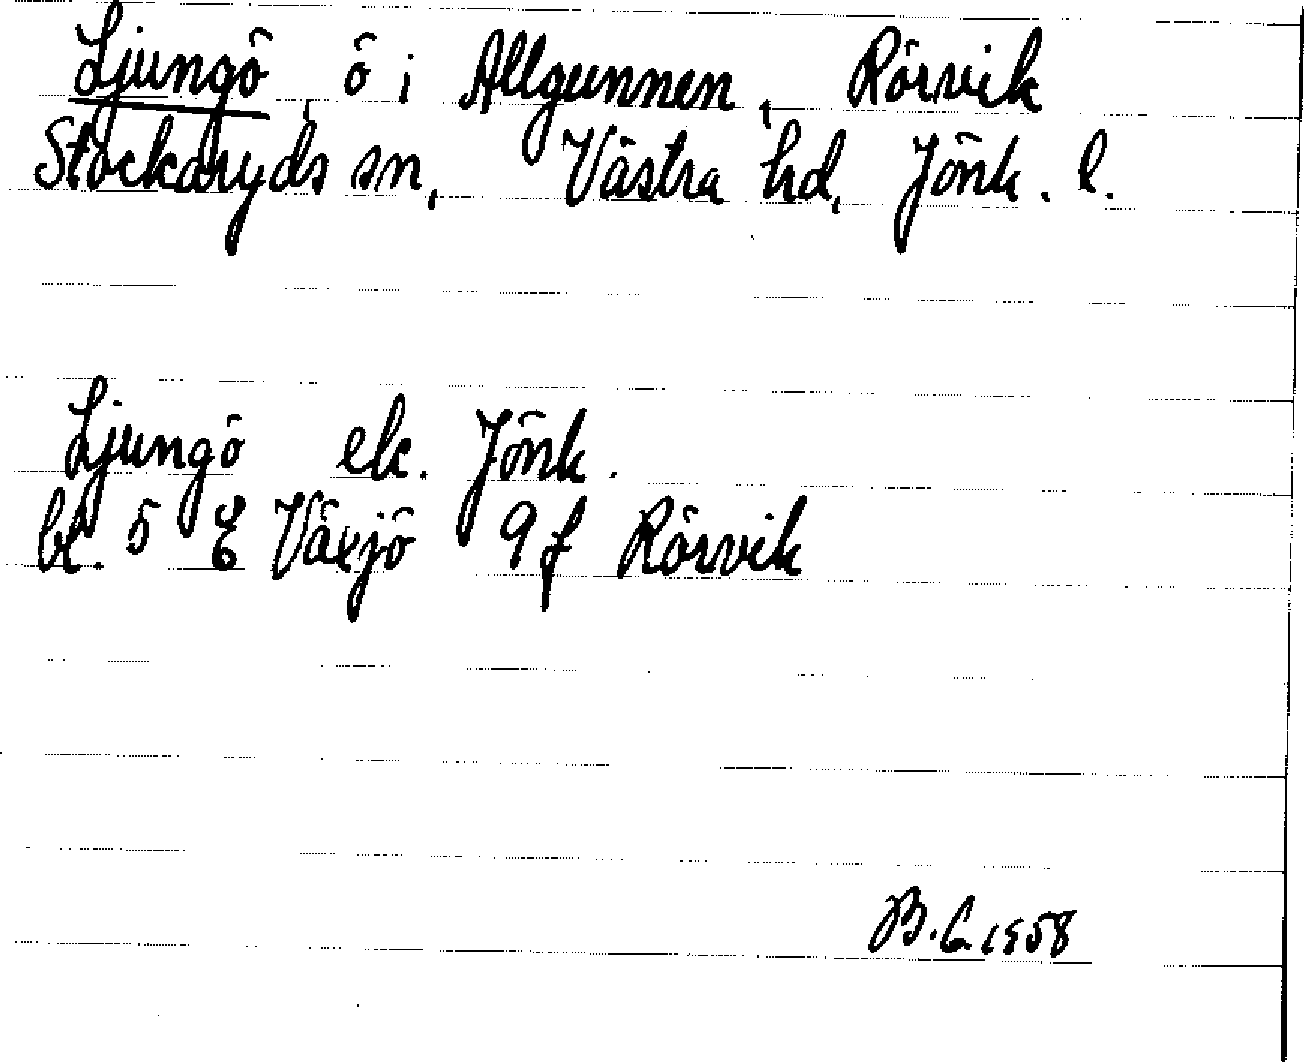 Ljungö, ö i Allgunnen, Rörvik
Stockaryds sn, Västra hd, Jönk. l.
Ljungö ek. Jönk.
bl. 5 E Växjö 9f Rörvik
B. 1958